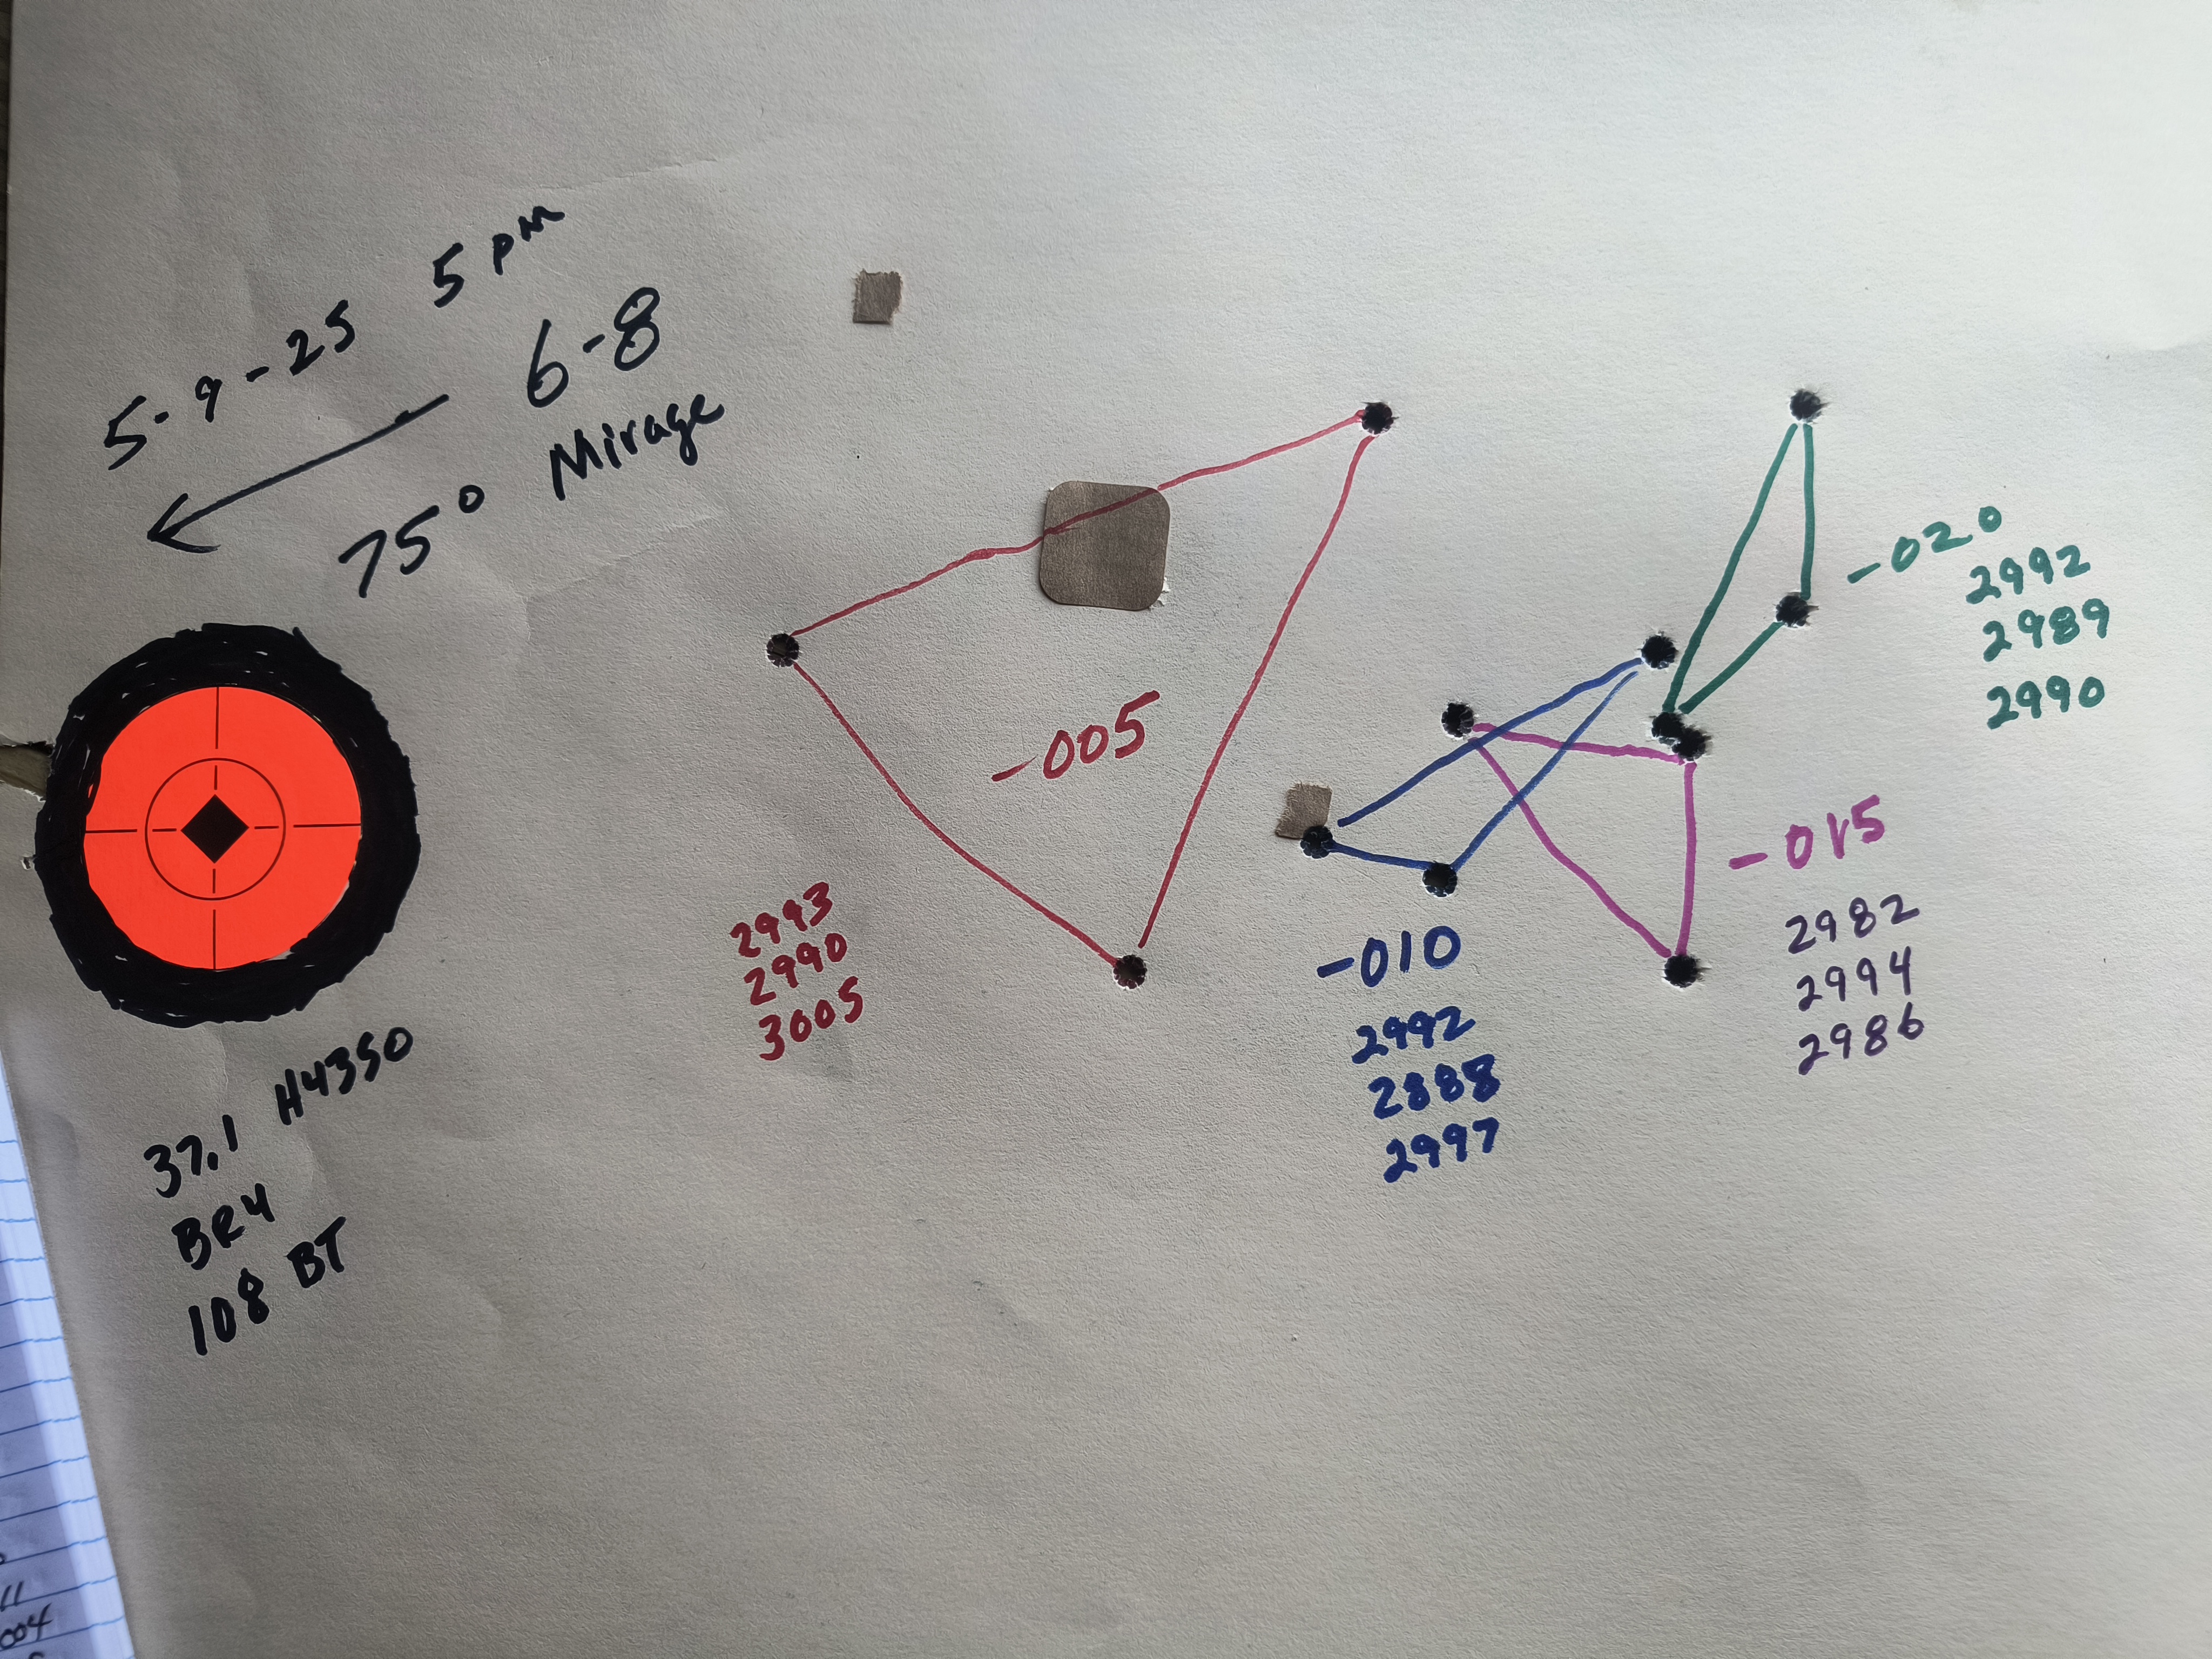 5-9-25 5 pm
6-8
75° Mirage
-005
2993
2990
3005
-010
2992
2888
2997
-015
2982
2994
2986
-020
2992
2989
2990
37.1 H4350
BR4
108 BT
11
004